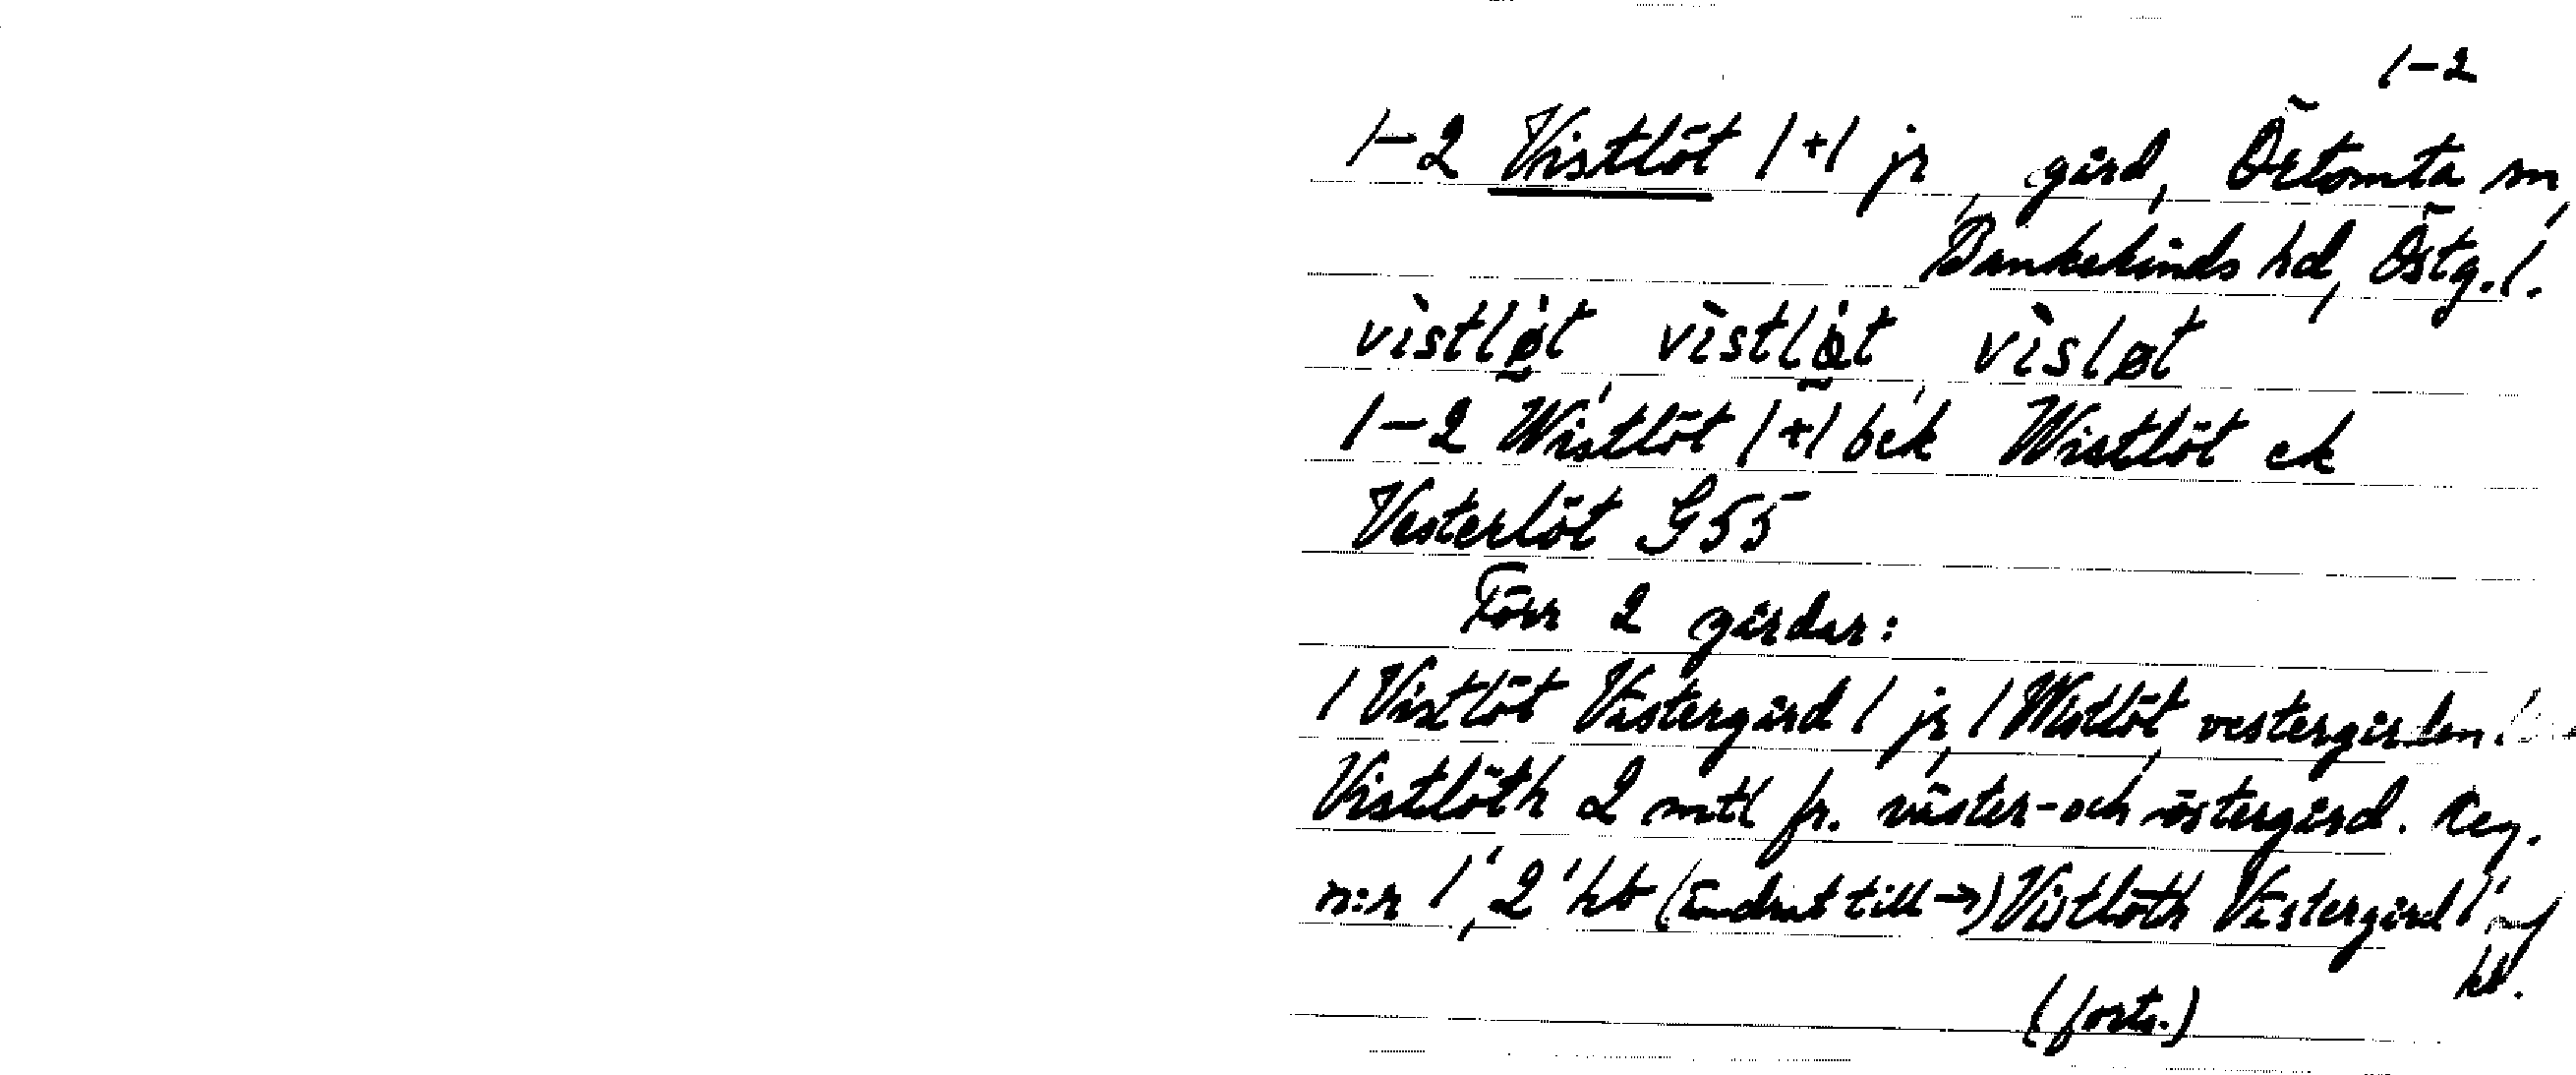 1-2
1-2 Vistlöt 1+1 jr, gård, Örtomta sn,
Bankekinds hd, Östg.l.
vìstlø̀t, vìstlö̀t, vìsløt
1-2 Wistlöt 1+1 bek Wistlöt ek
Vesterlöt G55
Förr 2 gårdar:
1 Vistlöt Västergård 1 jr, 1 Wistlöt, vestergården 1
Vistlöth 2 mtl fr. väster- och östergård. Reg.
n:r 1, 2 hb (ändrat till →) Vistlöth Västergård 1
hb.
(forts.)